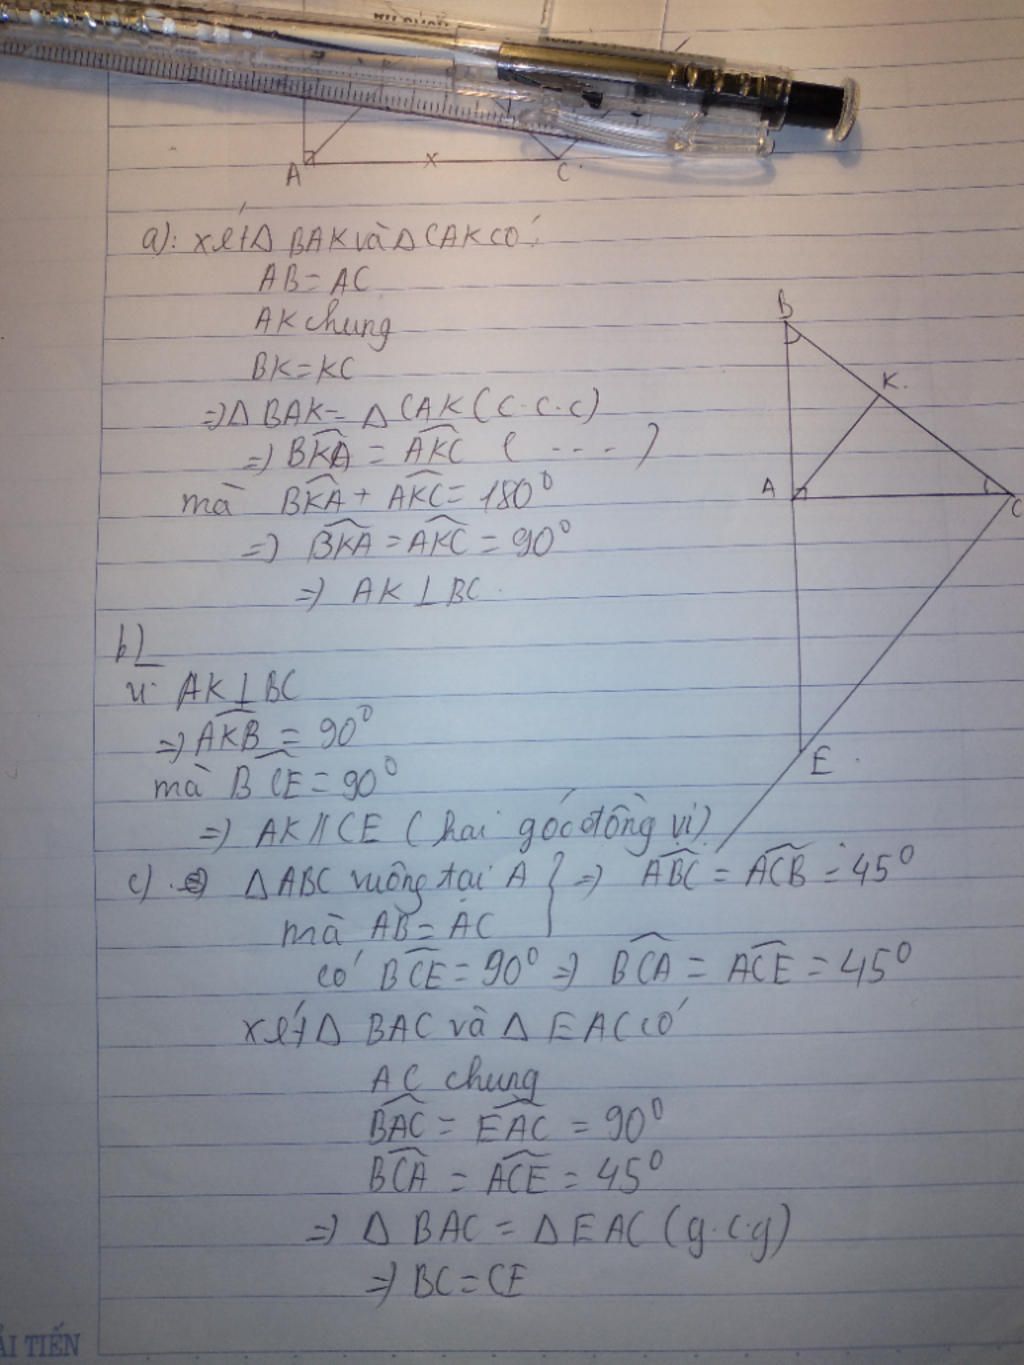 A
x
C
a): xét Δ BAK và Δ CAK có:
AB = AC
AK chung
BK = KC
=> Δ BAK = Δ CAK (c.c.c)
=> BK̂A = AK̂C ( ---- )
mà BK̂A + AK̂C = 180°
=> BK̂A = AK̂C = 90°
=> AK ⊥ BC
B
K
A
C
E
b)
vì AK ⊥ BC
=> AK̂B = 90°
mà BĈE = 90°
=> AK // CE (hai góc đồng vị)
c) Δ ABC vuông tại A } => AB̂C = AĈB = 45°
mà AB = AC
có BĈE = 90° => BĈA = AĈE = 45°
xét Δ BAC và Δ EAC có
AC chung
BÂC = EÂC = 90°
BĈA = AĈE = 45°
=> Δ BAC = Δ EAC (g.c.g)
=> BC = CE
ẢI TIẾN